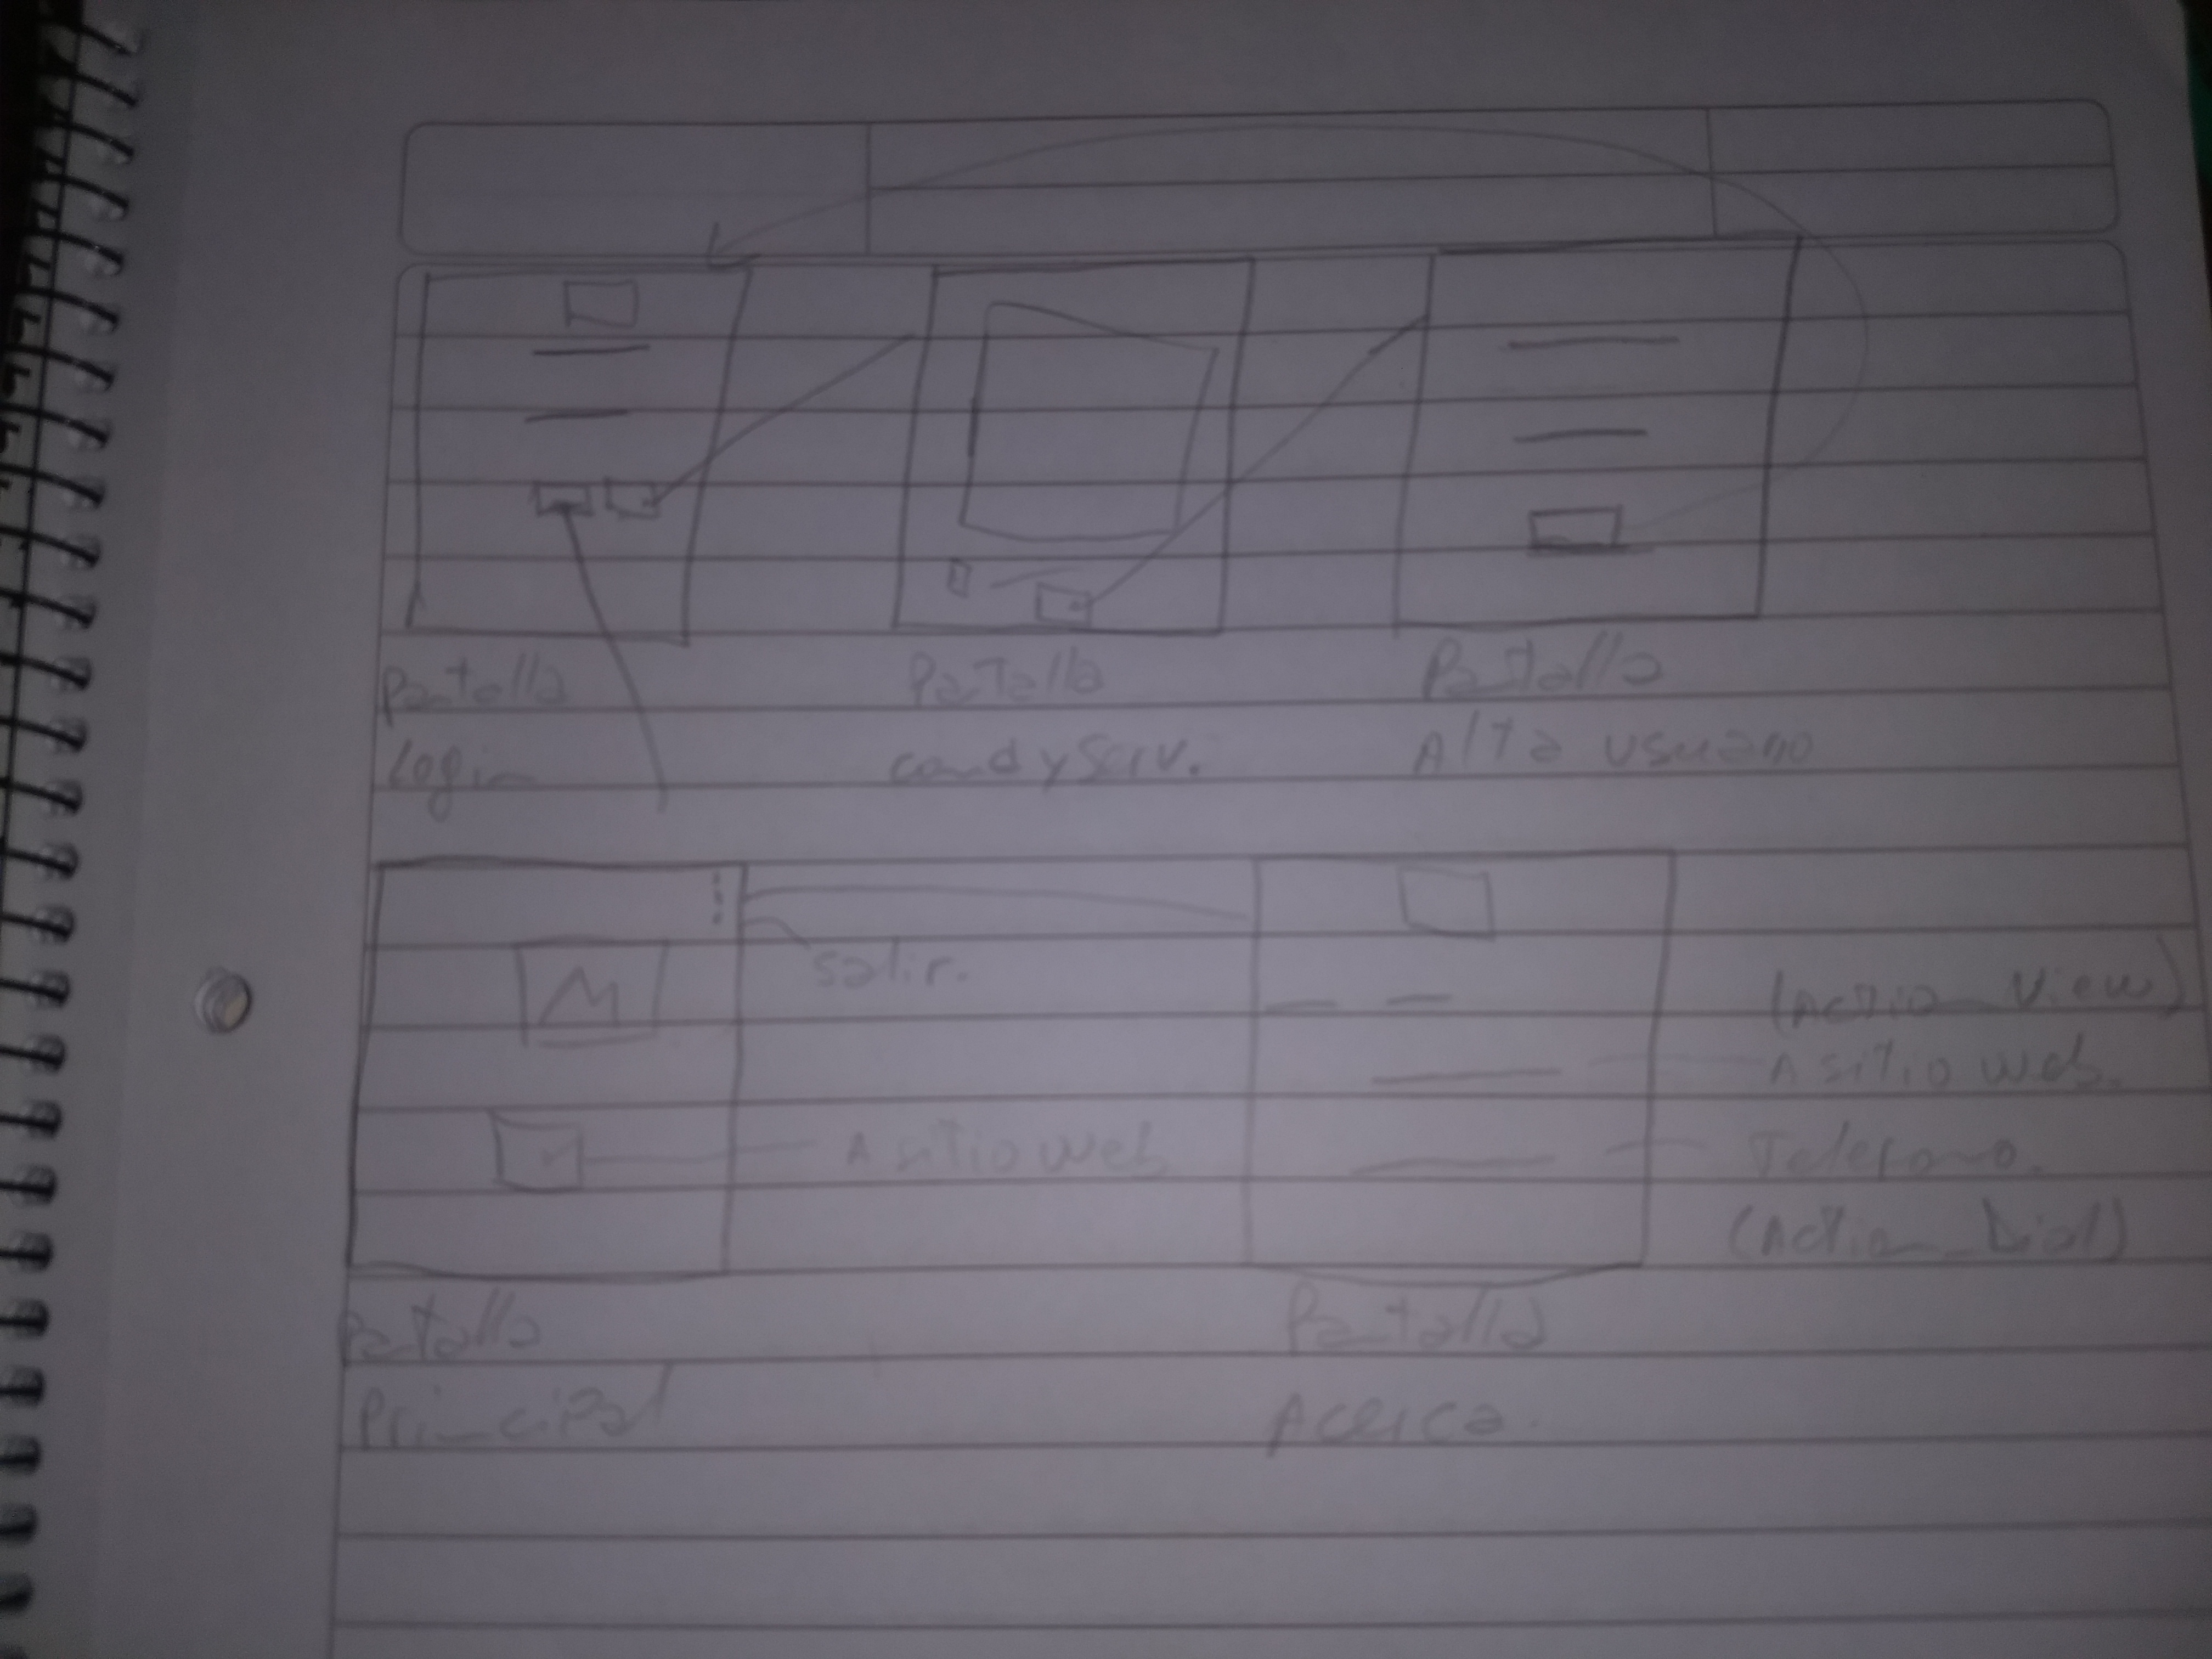 Pantalla
Login
Pantalla
condyserv.
Pantalla
Alta usuario
salir.
A sitio web
(Action_View)
A sitio web.
Telefono.
(Action_Dial)
Pantalla
Principal
Pantalla
Acerca.